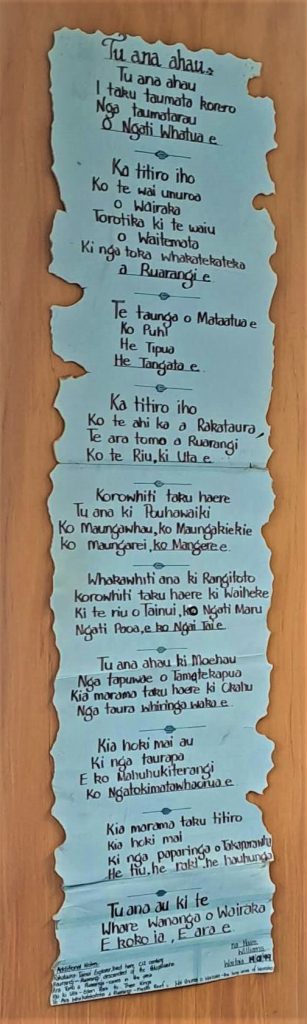 Tu ana ahau
Tu ana ahau
I taku taumata korero
Nga taumatarau
O Ngati Whatua e
Ka titiro iho
Ko te wai unuroa
o Wairaka
Torotika ki te waiu
o Waitemata
Ki nga toka whakatekateka
a Ruarangi e
Te taunga o Mataatua e
Ko Puhi
He Tipua
He Tangata e
Ka titiro iho
Ko te ahi ka a Rakataura,
Te ara tomo a Ruarangi
Ko te Riu, ki Uta e
Korowhiti taku haere
Tu ana ki Pouhawaiki
Ko Maungawhau, ko Maungakiekie
ko maungarei, ko Mangere e
Whakawhiti ana ki Rangitoto
Korowhiti taku haere ki Waiheke
Ki te riu o Tainui, ko Ngati Maru
Ngati Paoa, e ko Ngai Tai e
Tu ana ahau ki Moehau
Nga tapuwae o Tamatekapua
Kia marama taku haere ki Okahu
Nga taura whiringa waka e
Kia hoki mai au
Ki nga taurapa
E ko Mahuhukiterangi
Ko Ngatokimatawhaorua e
Kia marama taku titiro
Kia hoki mai
Ki nga paparinga o Takaparawha
He hu, he raki, he hauhunga
Tu ana au ki te
Whare Wananga o Wairaka
E koko ia, E ara e
na Haare
Williams
Additional Notes